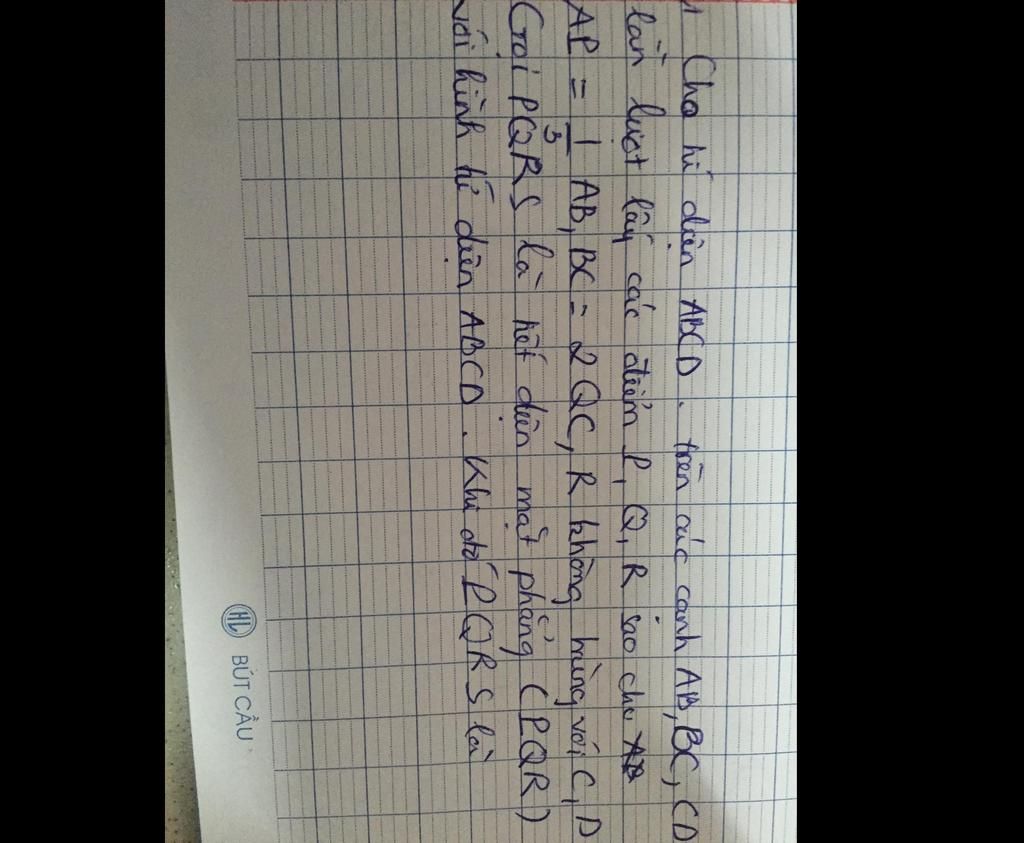 1 Cho tứ diện ABCD. trên các cạnh AB, BC, CD
lần lượt lấy các điểm P, Q, R sao cho
AP = 1/3 AB, BC = 2QC, R không trùng với C, D
Gọi PQRS là thiết diện mặt phẳng (PQR)
với hình tứ diện ABCD. Khi đó PQRS là
HL BÚT CẦU